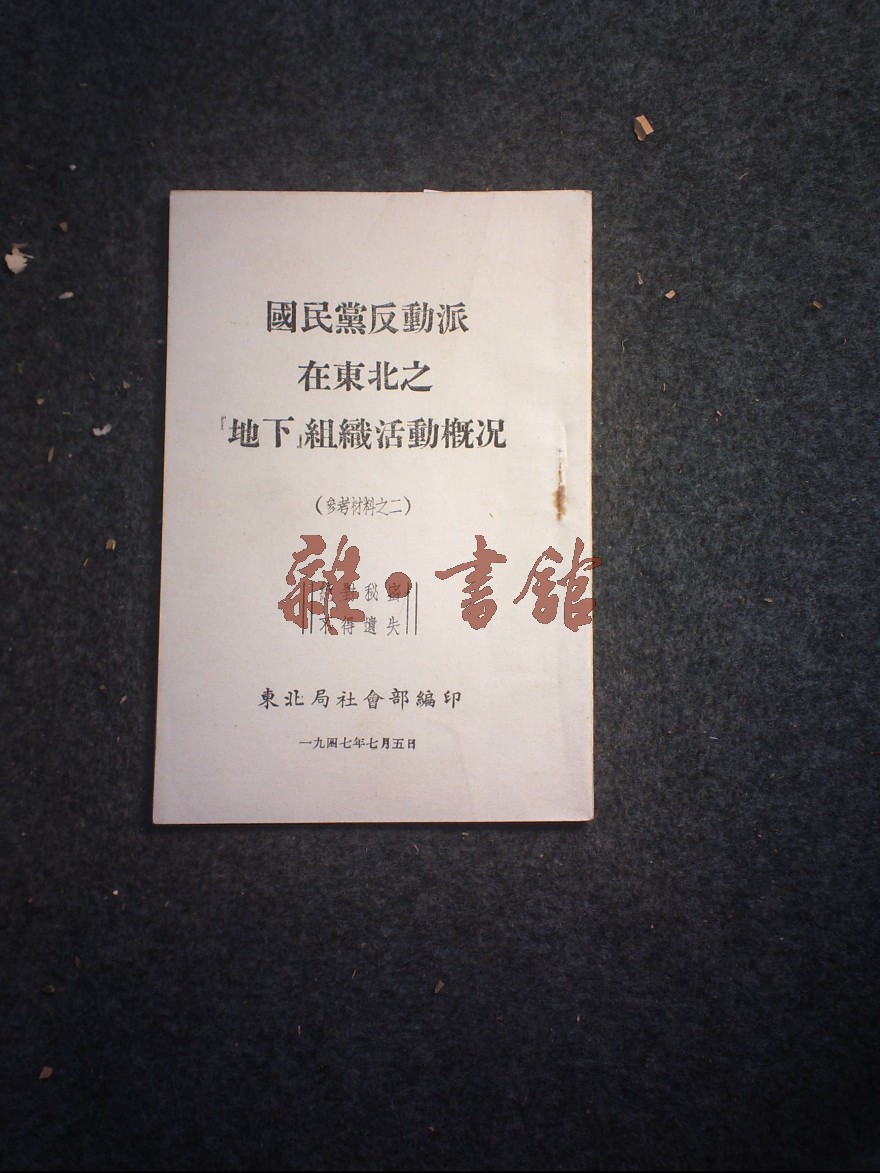 國民黨反動派
在東北之
『地下』組織活動概况
(參考材料之二)
絕對秘密
不得遺失
雜·書館
東北局社會部編印
一九四七年七月五日